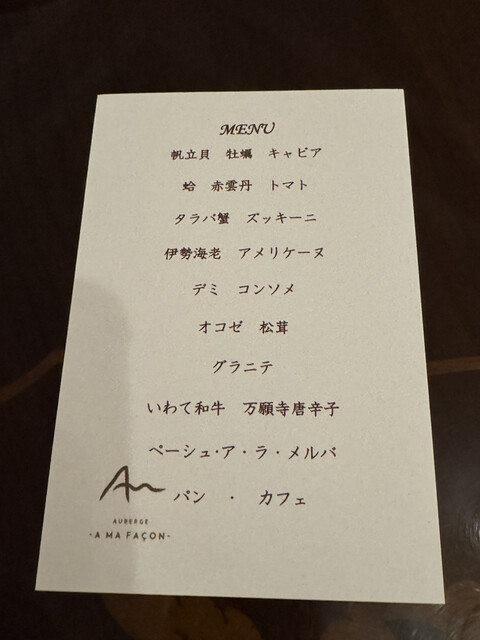 MENU
帆立貝 牡蠣 キャビア
蛤 赤雲丹 トマト
タラバ蟹 ズッキーニ
伊勢海老 アメリケーヌ
デミ コンソメ
オコゼ 松茸
グラニテ
いわて和牛 万願寺唐辛子
ペーシュ・ア・ラ・メルバ
パン ・ カフェ
AUBERGE
-A MA FAÇON-